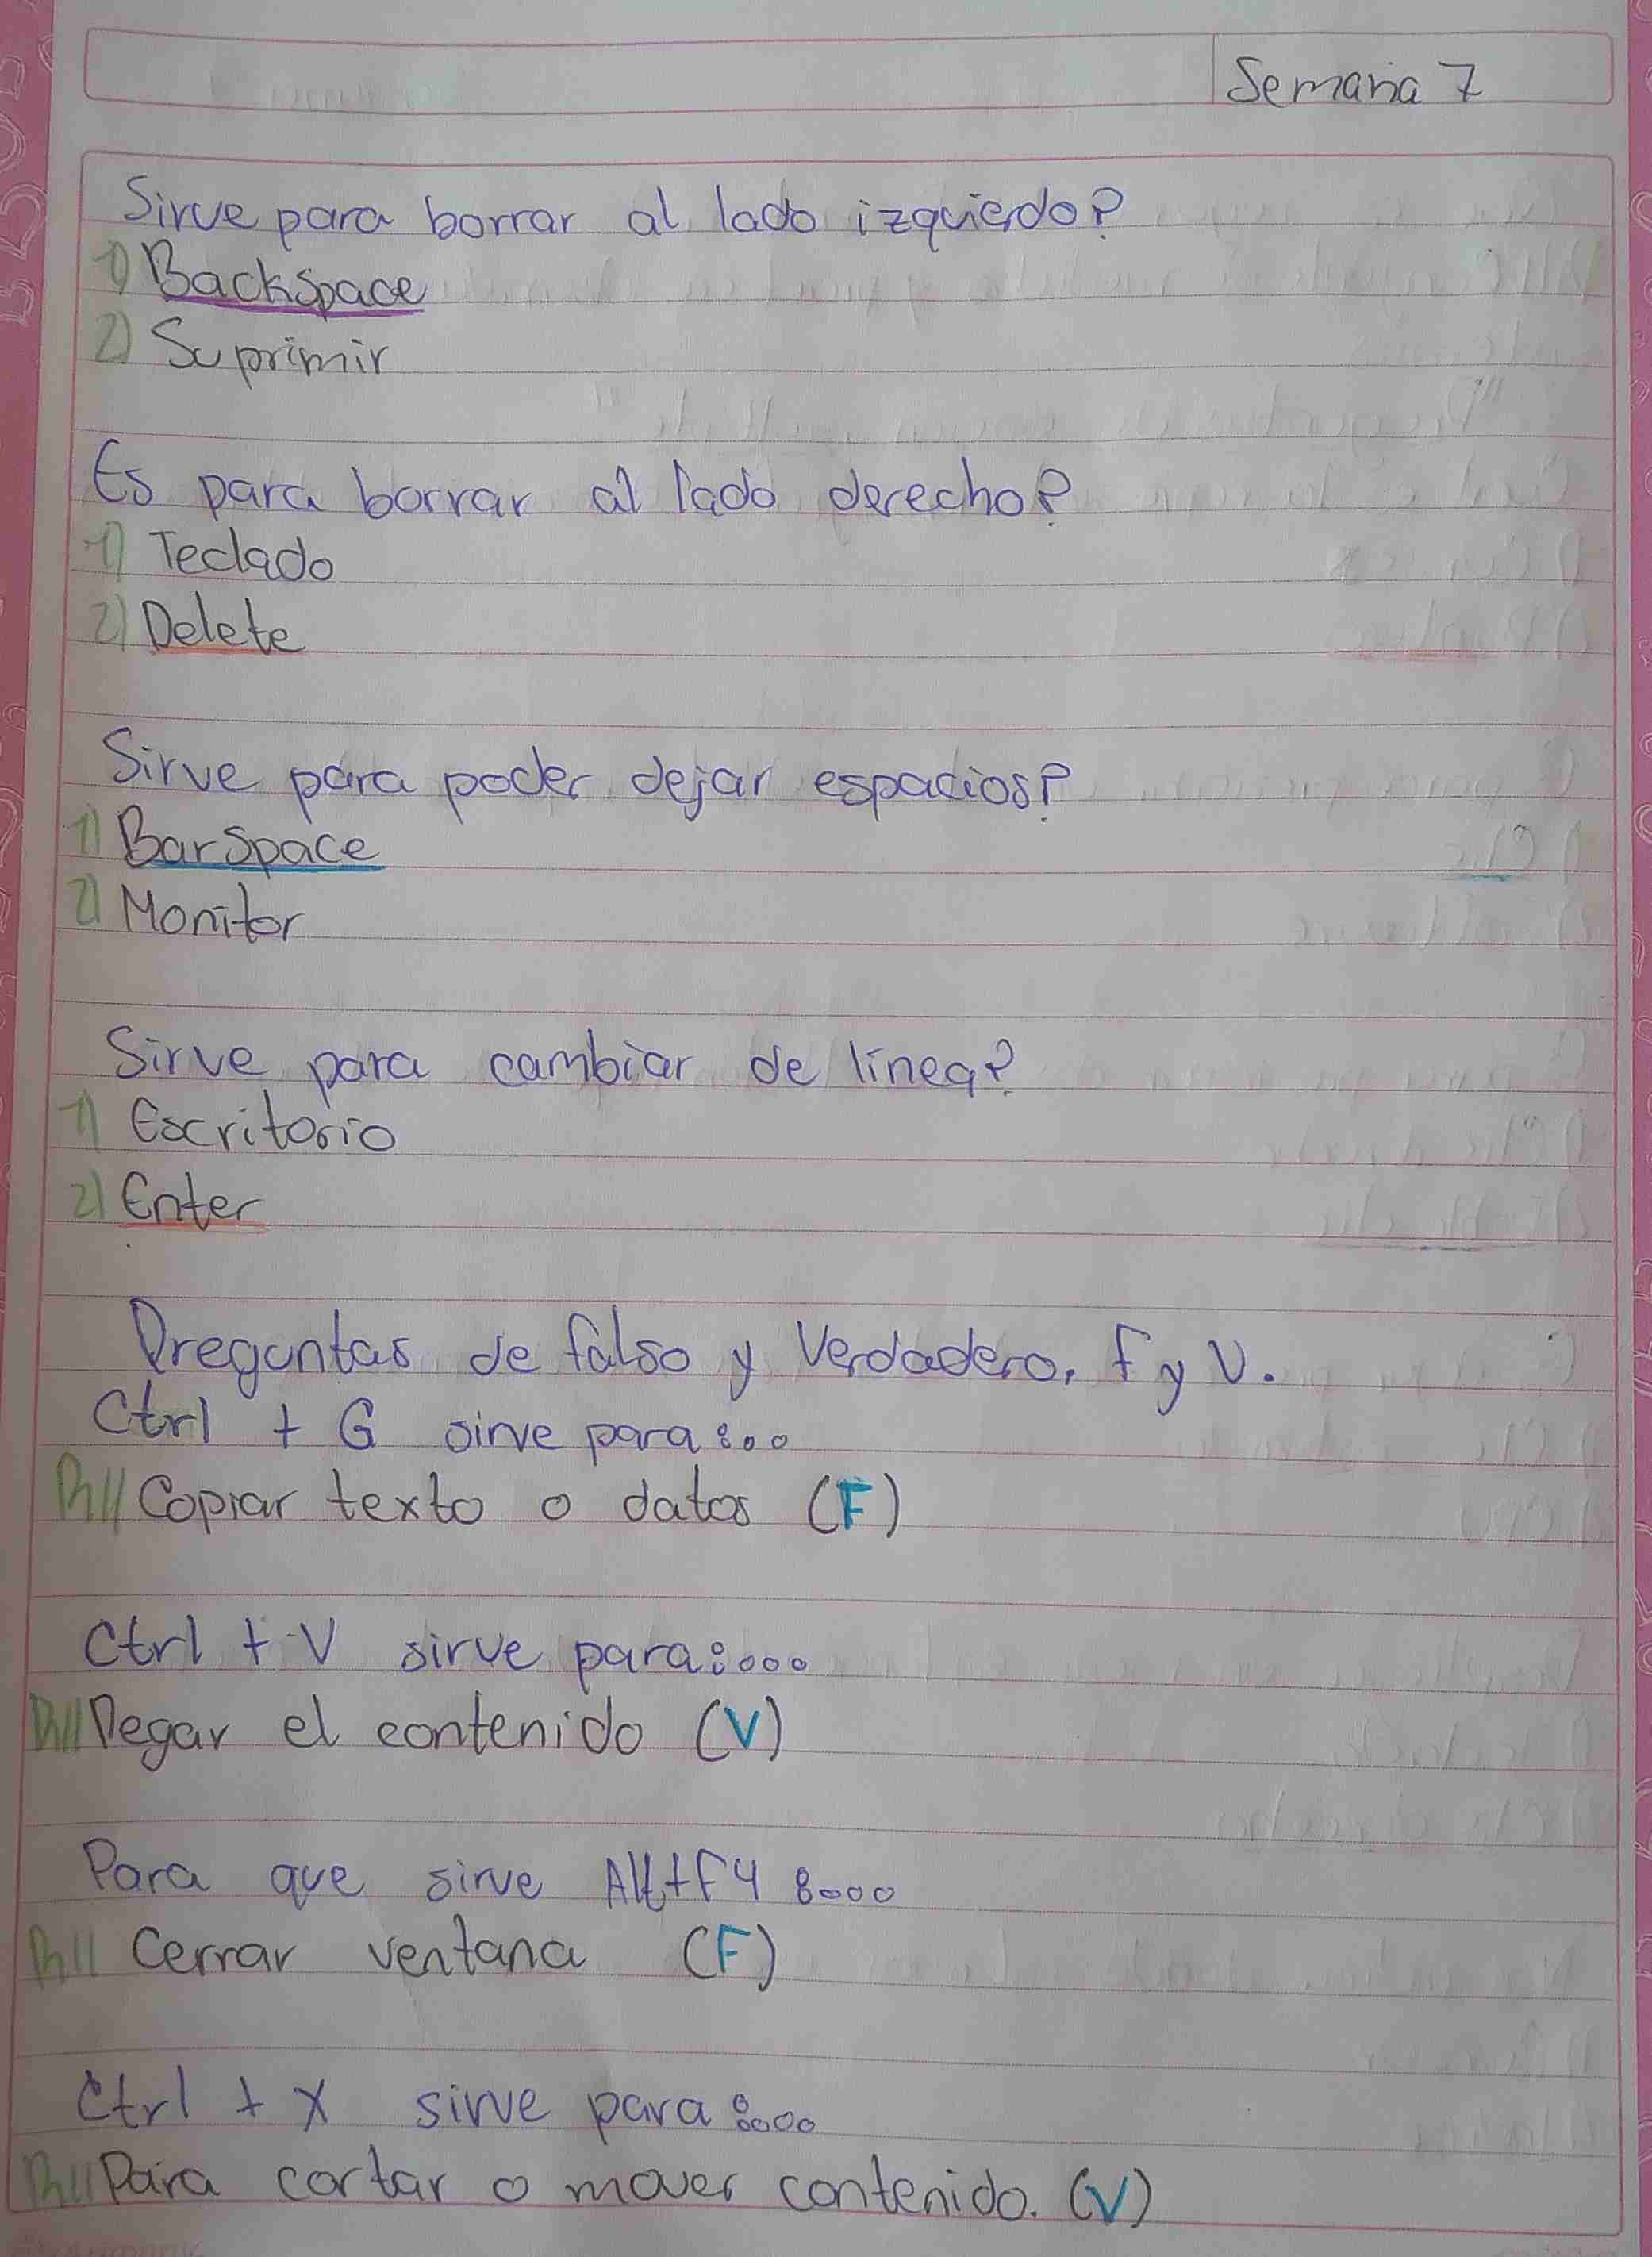 Semana 7
Sirve para borrar al lado izquierdo?
1) Backspace
2) Suprimir
Es para borrar al lado derecho?
1) Teclado
2) Delete
Sirve para poder dejar espacios?
1) BarSpace
2) Monitor
Sirve para cambiar de línea?
1) Escritorio
2) Enter
Preguntas de falso y Verdadero, F y V.
Ctrl + G sirve para:..
R// Copiar texto o datos (F)
Ctrl + V sirve para:...
R// Pegar el contenido (V)
Para que sirve Alt+F4 :...
R// Cerrar ventana (F)
Ctrl + X sirve para:...
R// Para cortar o mover contenido. (V)